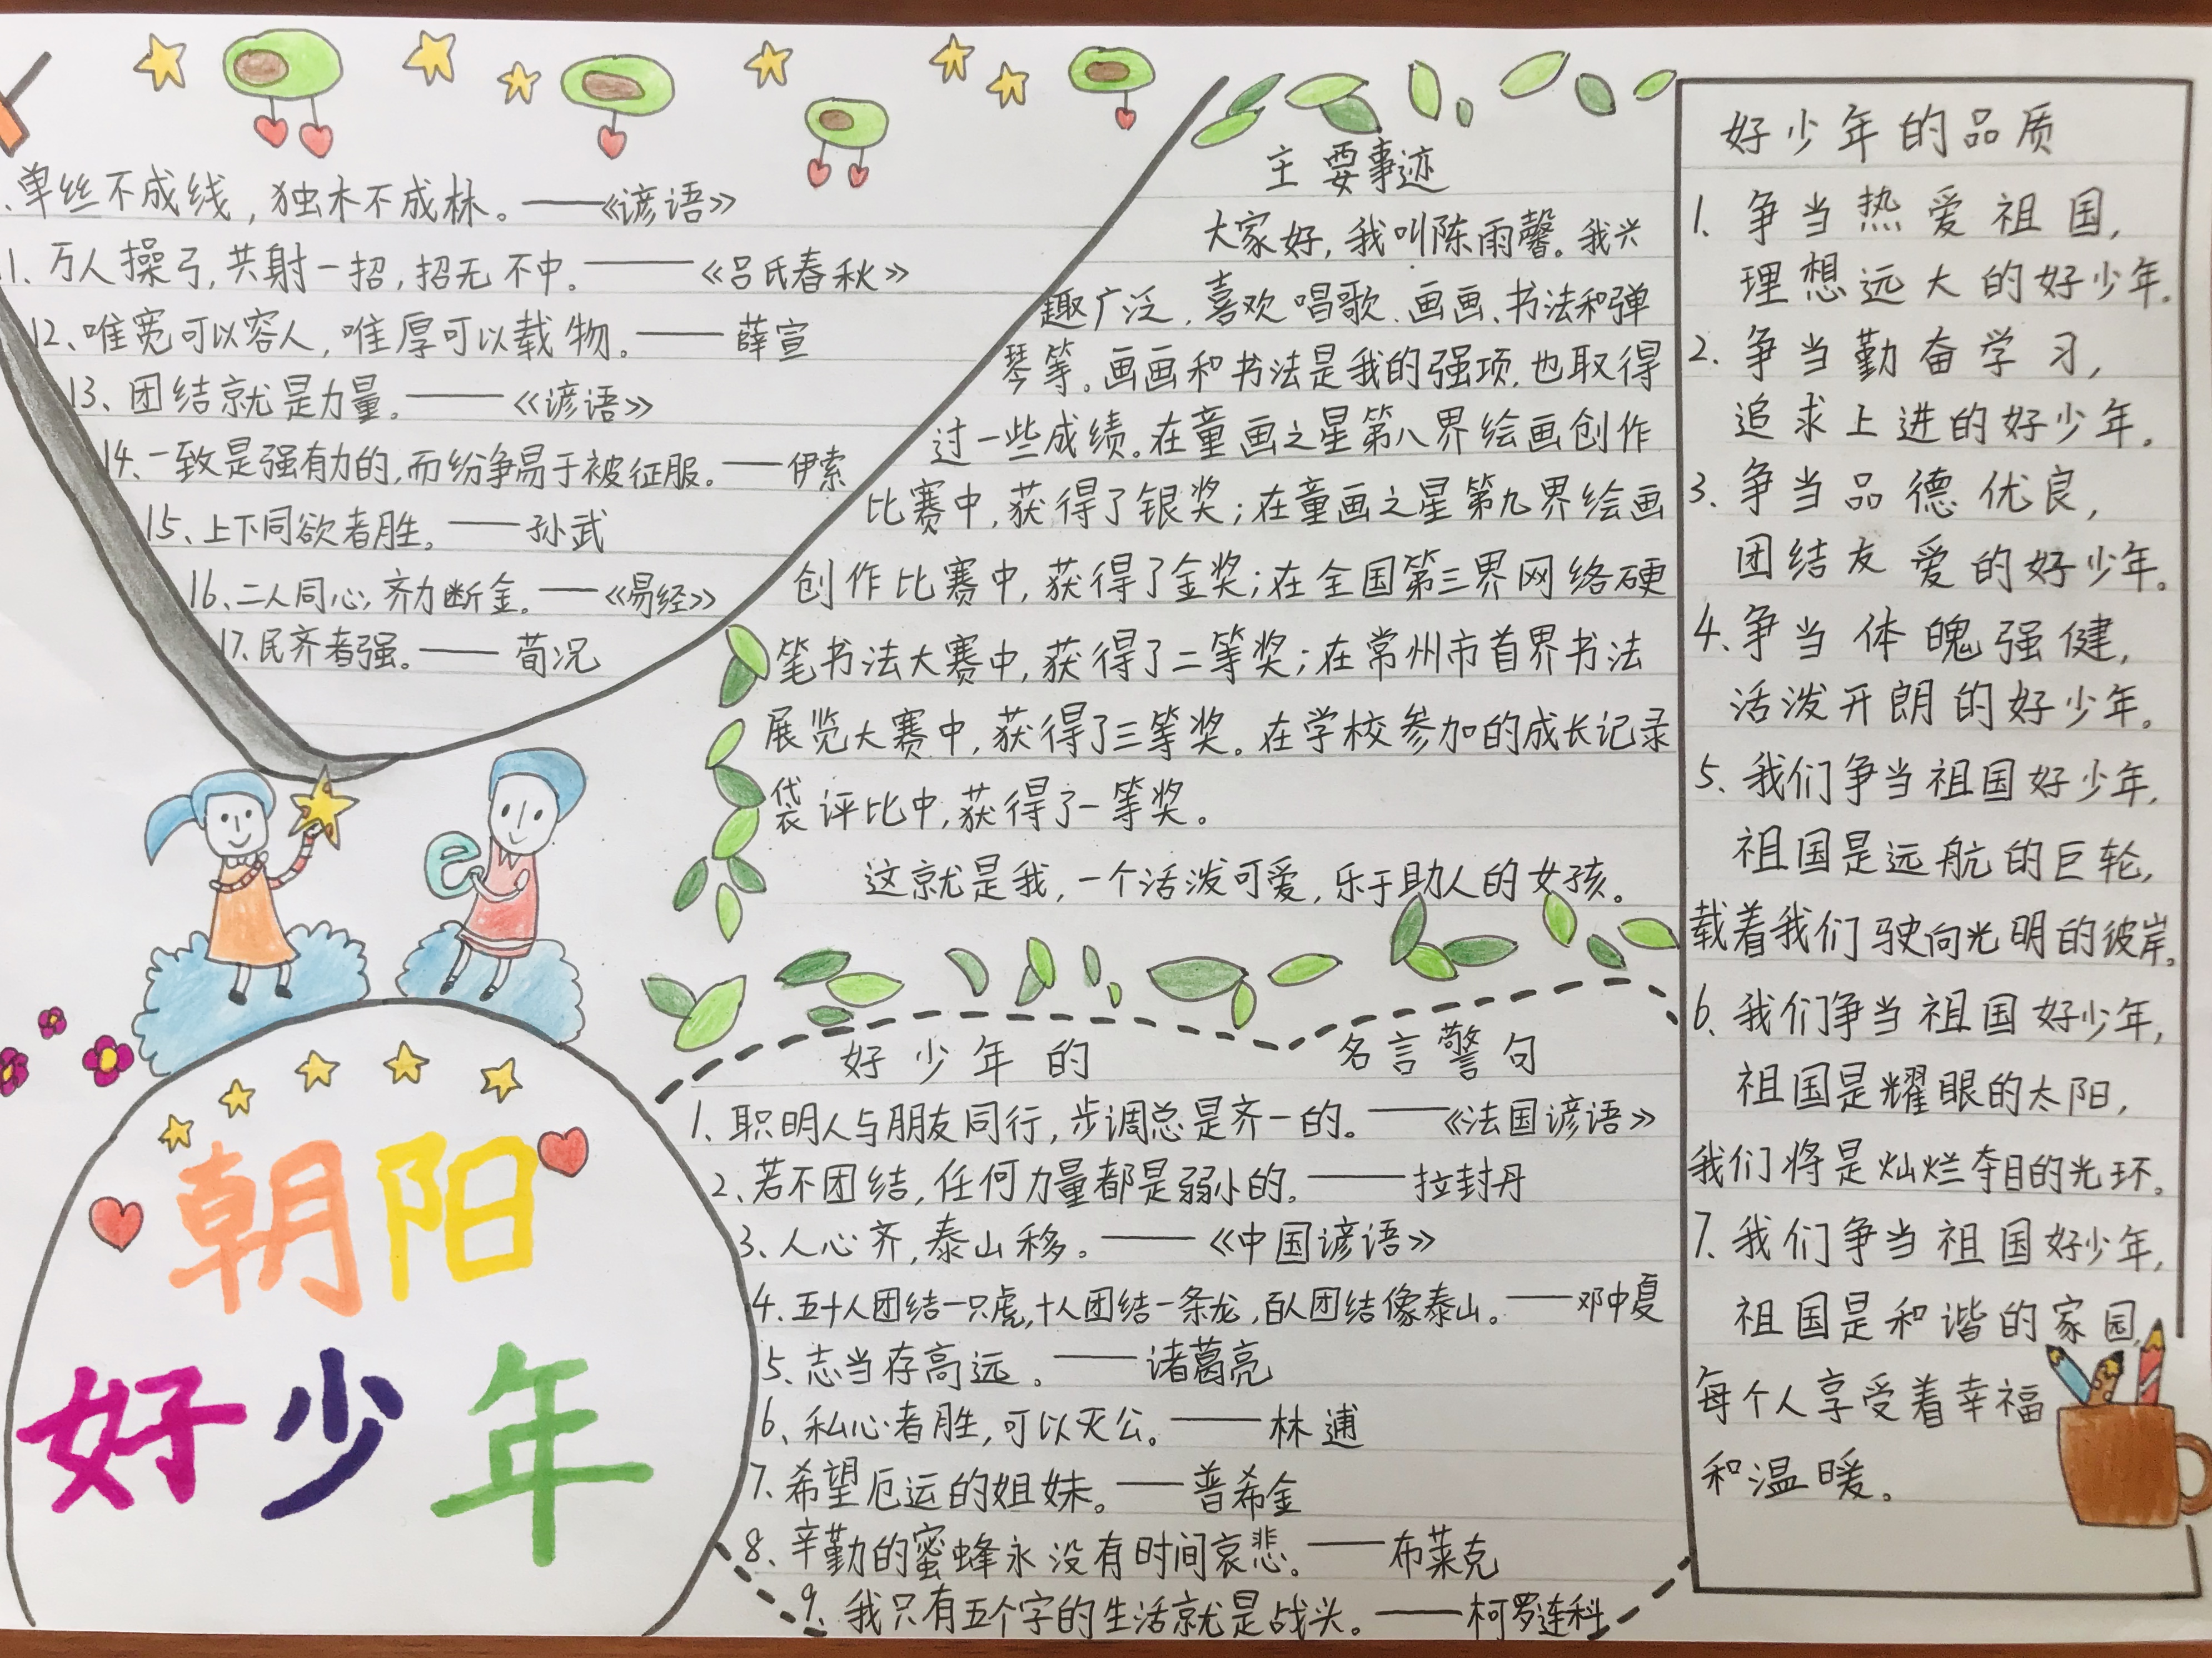 、单丝不成线，独木不成林。——《谚语》
11、万人操弓，共射一招，招无不中。——《吕氏春秋》
12、唯宽可以容人，唯厚可以载物。——薛宣
13、团结就是力量。——《谚语》
14、一致是强有力的，而纷争易于被征服。——伊索
15、上下同欲者胜。——孙武
16、二人同心，齐力断金。——《易经》
17、民齐者强。——荀况
主要事迹
大家好，我叫陈雨馨。我兴
趣广泛，喜欢唱歌、画画、书法和弹
琴等。画画和书法是我的强项，也取得
过一些成绩。在童画之星第八界绘画创作
比赛中，获得了银奖；在童画之星第九界绘画
创作比赛中，获得了金奖；在全国第三界网络硬
笔书法大赛中，获得了二等奖；在常州市首界书法
展览大赛中，获得了三等奖。在学校参加的成长记录
袋评比中，获得了一等奖。
这就是我，一个活泼可爱，乐于助人的女孩。
好少年的品质
1、争当热爱祖国，
理想远大的好少年。
2、争当勤奋学习，
追求上进的好少年。
3、争当品德优良，
团结友爱的好少年。
4、争当体魄强健，
活泼开朗的好少年。
5、我们争当祖国好少年，
祖国是远航的巨轮，
载着我们驶向光明的彼岸。
6、我们争当祖国好少年，
祖国是耀眼的太阳，
我们将是灿烂夺目的光环。
7、我们争当祖国好少年，
祖国是和谐的家园，
每个人享受着幸福
和温暖。
朝阳
好少年
好少年的 名言警句
1、职明人与朋友同行，步调总是齐一的。——《法国谚语》
2、若不团结，任何力量都是弱小的。——拉封丹
3、人心齐，泰山移。——《中国谚语》
4、五十人团结一只虎，十人团结一条龙，百人团结像泰山。——邓中夏
5、志当存高远。——诸葛亮
6、私心者胜，可以灭公。——林逋
7、希望厄运的姐妹。——普希金
8、辛勤的蜜蜂永没有时间哀悲。——布莱克
9、我只有五个字的生活就是战头。——柯罗连科